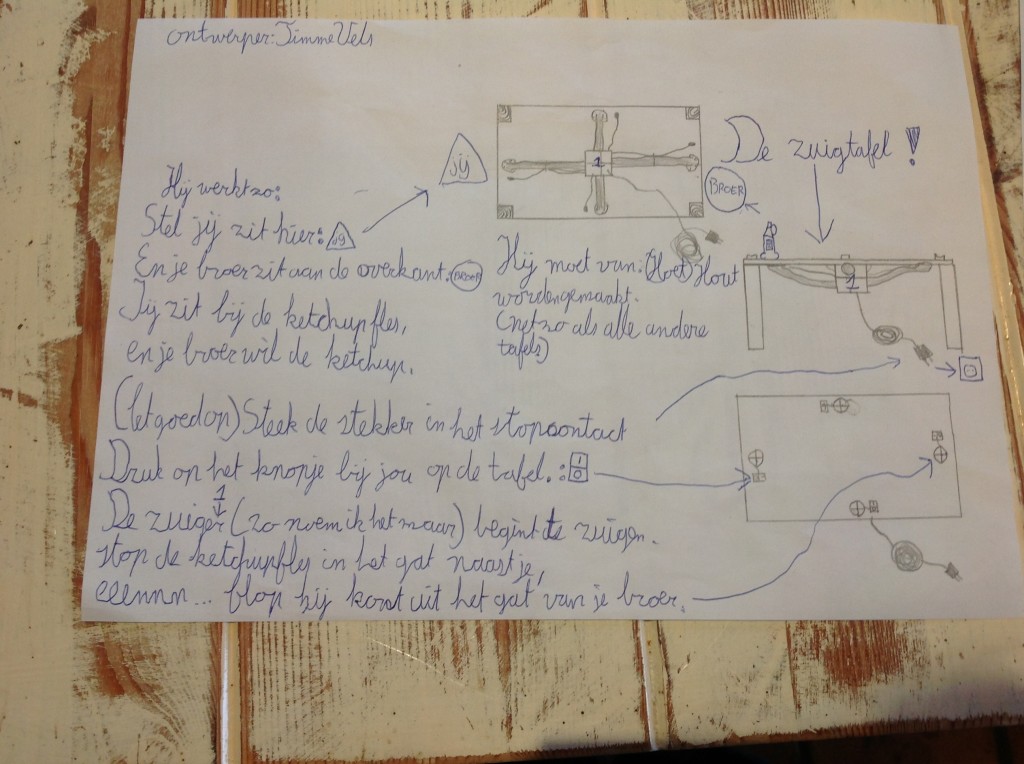 ontwerper: Timme Vels
De zuigtafel!
jij
1
BROER
Hij werkt zo:
Stel jij zit hier: jij
En je broer zit aan de overkant. BROER
Jij zit bij de ketchupfles,
en je broer wil de ketchup.
Hij moet van: (Hoet) Hout
worden gemaakt.
(net zo als alle andere
tafels)
1
(let goed op) Steek de stekker in het stopcontact
Druk op het knopje bij jou op de tafel.: 1 0
De zuiger 1 (zo noem ik het maar) begint te zuigen.
stop de ketchupfles in het gat naast je,
eeennnn... flop hij komt uit het gat van je broer.